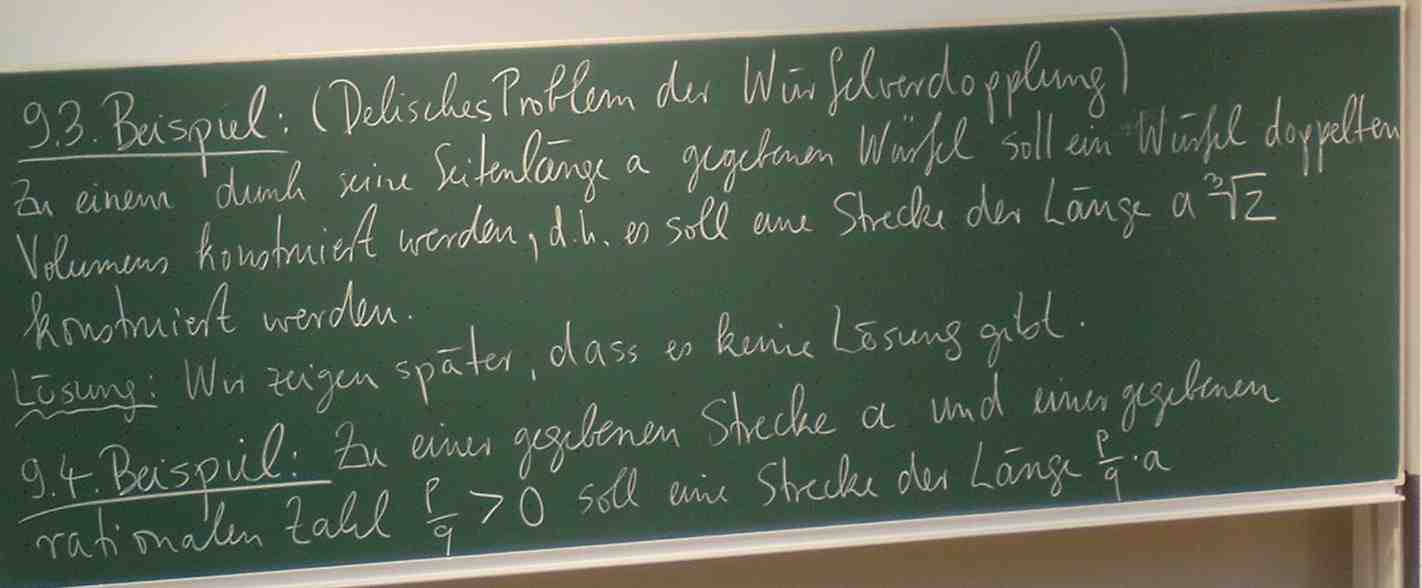 9.3. Beispiel: (Delisches Problem der Würfelverdopplung)
Zu einem durch seine Seitenlänge a gegebenen Würfel soll ein Würfel doppelten
Volumens konstruiert werden, d.h. es soll eine Strecke der Länge a ∛2
konstruiert werden.
Lösung: Wir zeigen später, dass es keine Lösung gibt.
9.4. Beispiel: Zu einer gegebenen Strecke a und einer gegebenen
rationalen Zahl p/q > 0 soll eine Strecke der Länge p/q · a